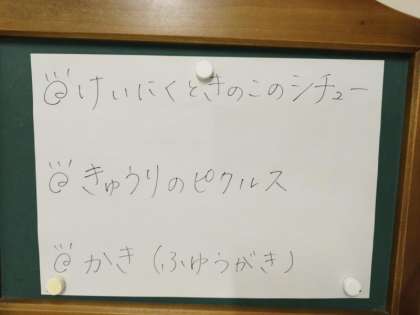 けいにくときのこのシチュー
きゅうりのピクルス
かき(ふゆうがき)